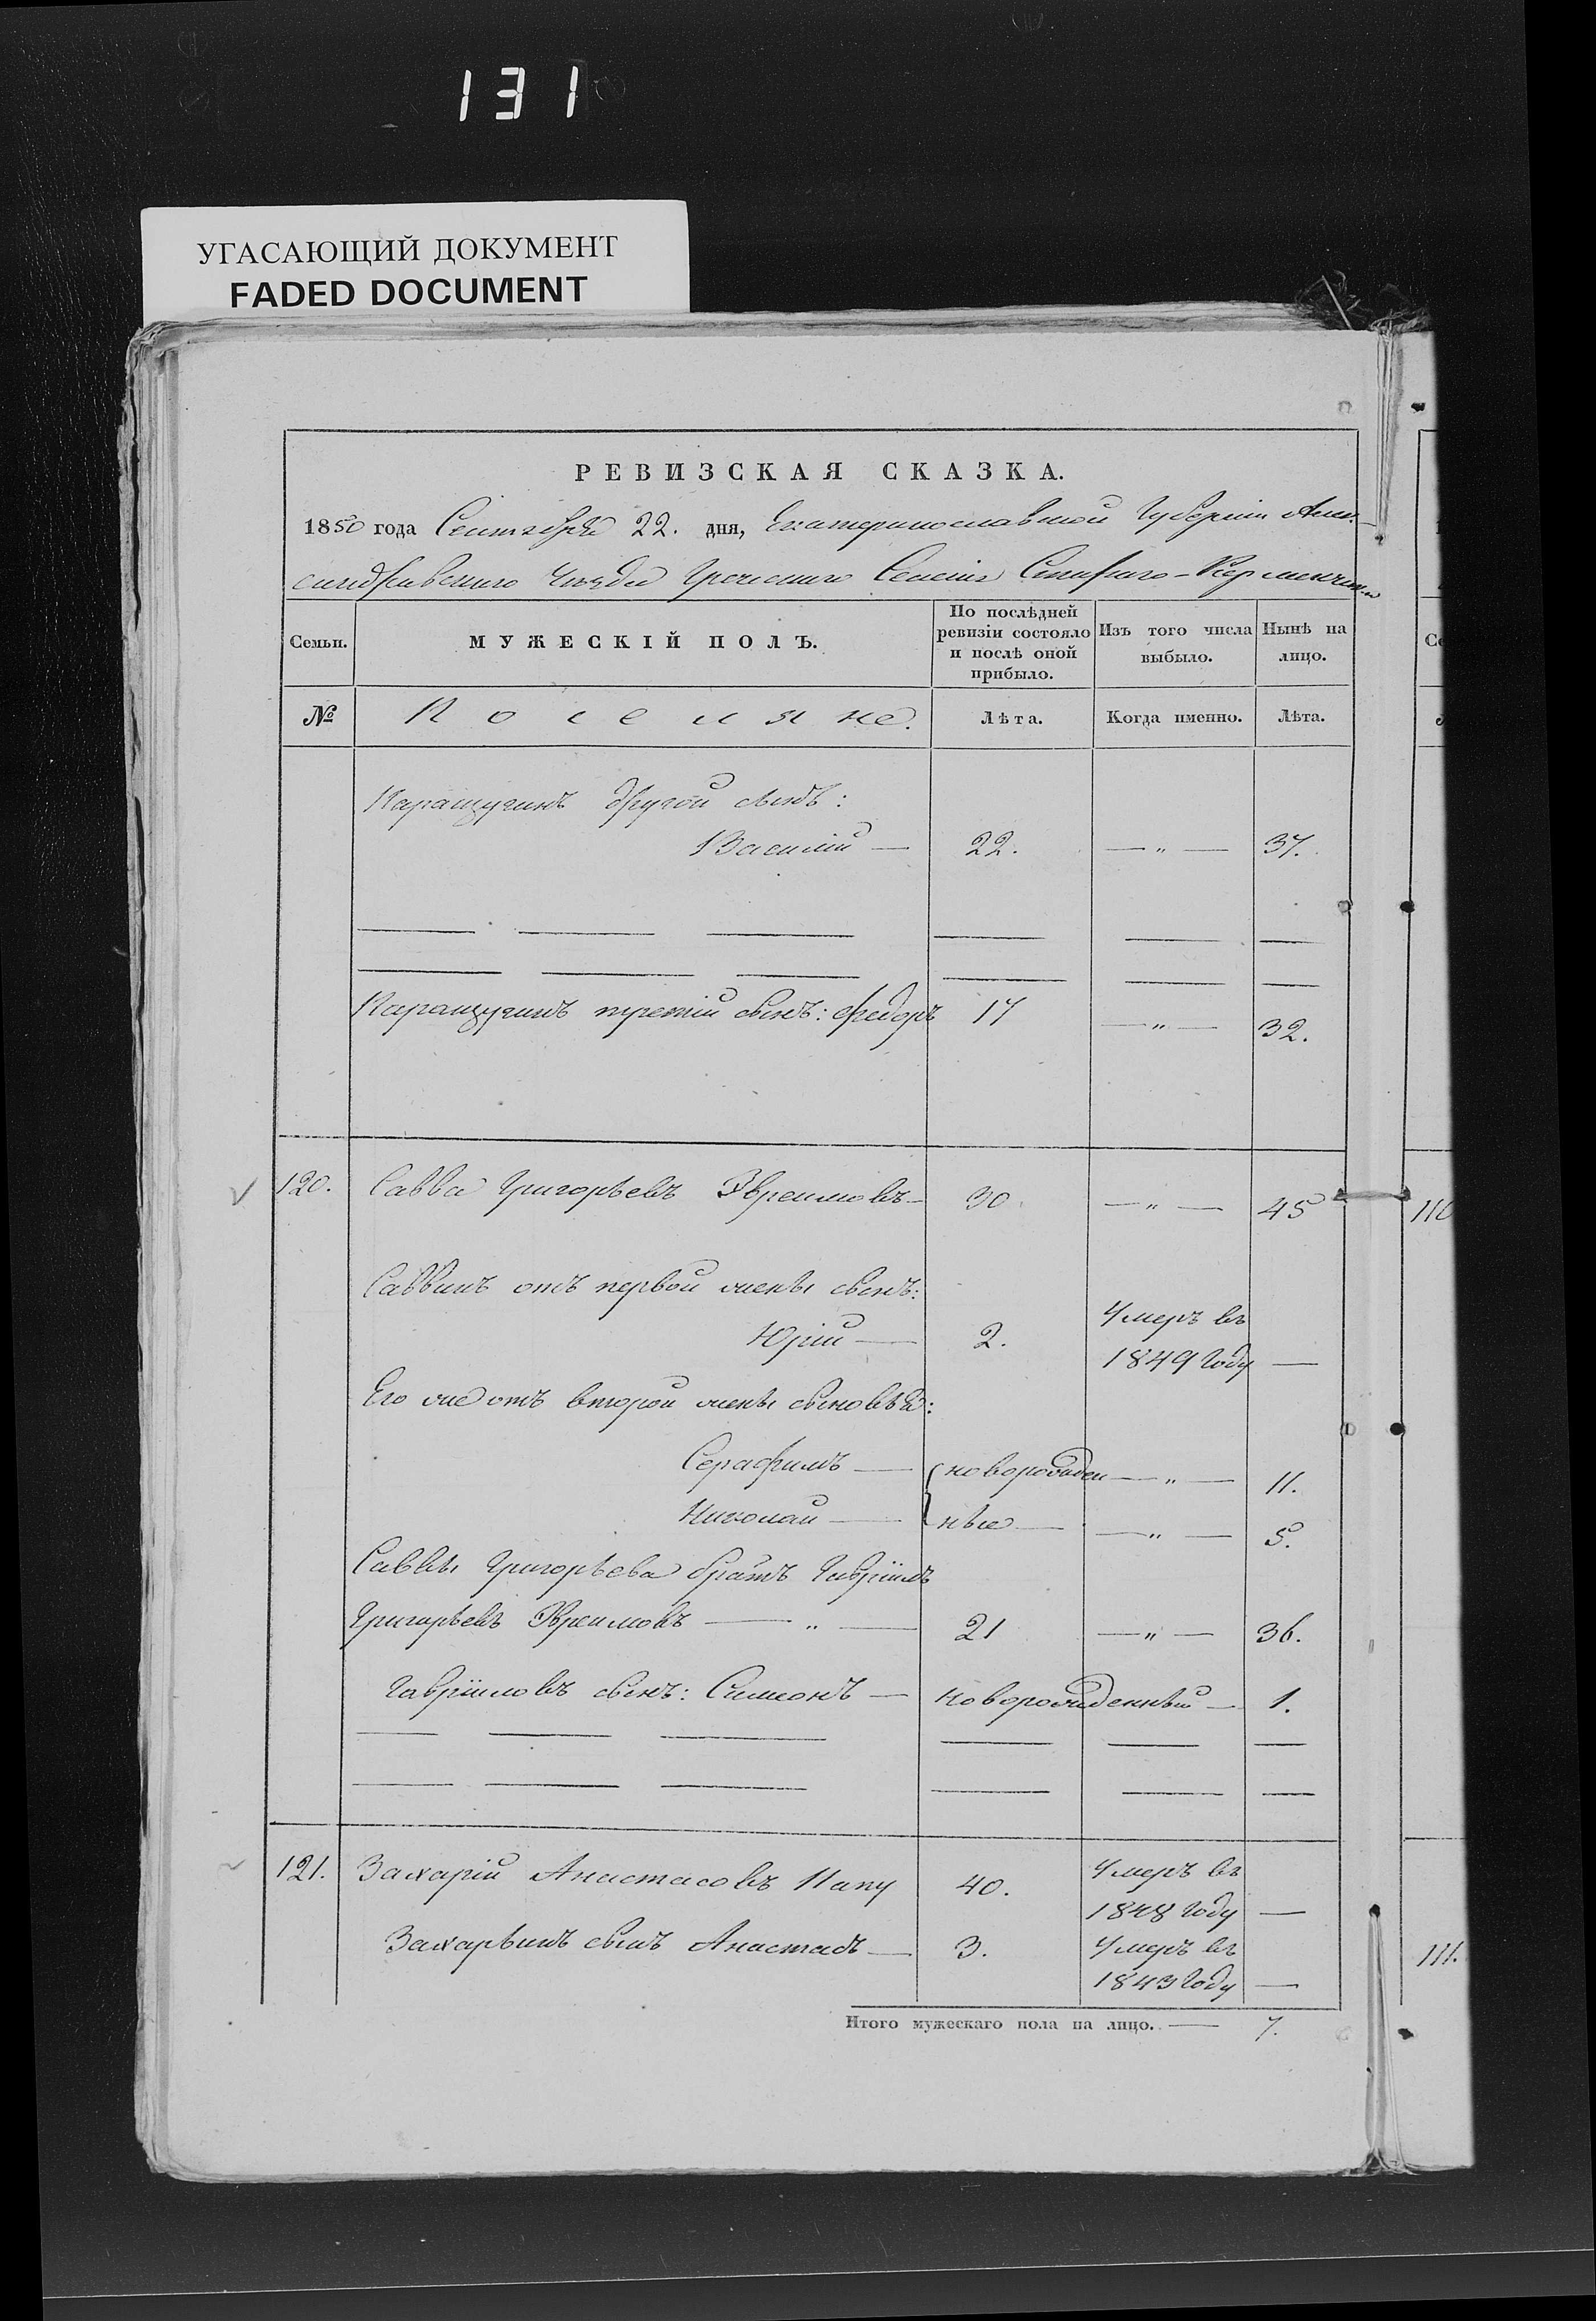 131
УГАСАЮЩИЙ ДОКУМЕНТ
FADED DOCUMENT
РЕВИЗСКАЯ СКАЗКА.
1850 года Сентября 22. дня, Екатеринославской Губернiи Алек-
сандровскаго Уѣзда Греческаго Селенiя Стараго-Керменчика
Семьи.
МУЖЕСКІЙ ПОЛЪ.
По послѣдней ревизіи состояло и послѣ оной прибыло.
Изъ того числа выбыло.
Нынѣ на лицо.
№ Поселяне. Лѣта. Когда именно. Лѣта.
другой сынъ:
Василій — 22. — „ — 37.
третій сынъ: Федоръ 17 — „ — 32.
120. Савва Григорьевъ Эвреимовъ — 30 — „ — 45
Саввинъ отъ первой жены сынъ:
Юрій — 2. Умеръ въ
1849 Году —
Его же отъ второй жены сыновья:
Серафимъ — новорожден — „ — 11.
Николай — ные — — „ — 5.
Саввы Григорьева братъ Гавріилъ
Григорьевъ Эвреимовъ — „ — 21 — „ — 36.
Гавріиловъ сынъ: Симеонъ — новорожденный — 1.
121. Захарій Анастасовъ Папу 40. Умеръ въ
1848 Году —
Захарьинъ сынъ Анастасъ — 3. Умеръ въ
1843 Году —
Итого мужескаго пола на лицо. — 7.
110
111.